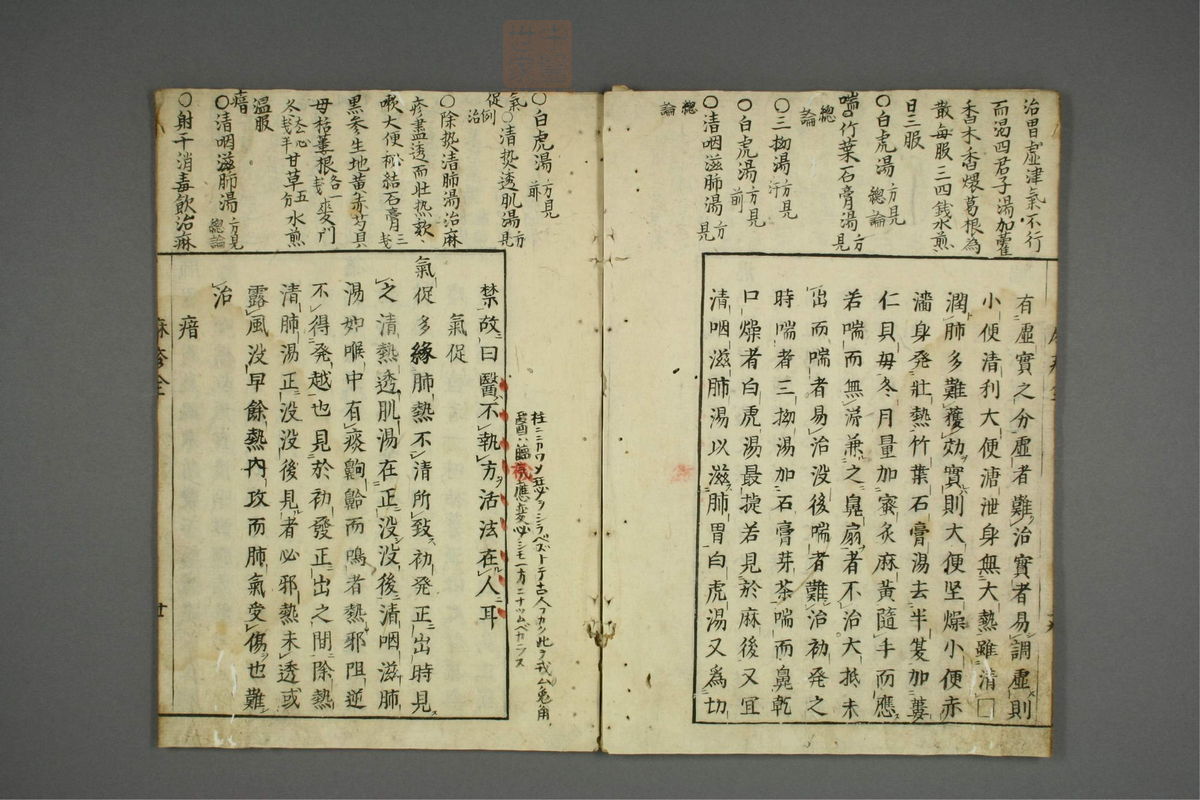 治胃虛津氣不行
而渴四君子湯加藿
香木香煨葛根為
散每服三四錢水煎
日三服
○白虎湯方見總論
喘○竹葉石膏湯方見
總論
○三拗湯方見汗
○白虎湯方見前
○清咽滋肺湯方見
總論
有虛實之分虛者難治實者易調虛則
小便清利大便溏泄身無大熱雖清□
潤肺多難獲効實則大便坚燥小便赤
濇身発壯熱竹葉石膏湯去半夏加蔞
仁貝毋冬月量加蜜炙麻黃隨手而應
若喘而無涕兼之鼻扇者不治大抵未
出而喘者易治没後喘者難治初発之
時喘者三拗湯加石膏芽茶喘而鼻乾
口燥者白虎湯最捷若見於麻後又宜
清咽滋肺湯以滋肺胃白虎湯又爲切
○白虎湯方見前
氣促○清熱透肌湯方見
例治
○除熱清肺湯治麻
疹盡透而壯热欬
嗽大便秘結石膏三戔
黑參生地黃赤芍貝
母栝蔞根各一戔麥門
冬去心戔半甘草五分水煎
温服
瘖○清咽滋肺湯方見總論
○射干消毒飲治麻
禁故曰醫不執方活法在人耳
氣促
氣促多緣肺熱不清所致初発正出時見
之清熱透肌湯在正没没後清咽滋肺
湯如喉中有痰齁䶎而鳴者熱邪阻逆
不得発越也見於初發正出之間除熱
清肺湯正没没後見者必邪熱未透或
露風没早餘熱內攻而肺氣受傷也難
治
瘖